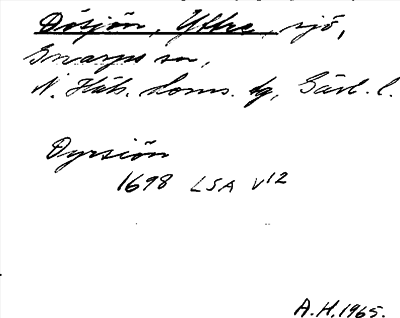 Dösjön, Yttre, sjö,
Gnarps sn,
N. Häls. doms. tg, Gävl. l.
Dyrsiön
1698 LSA V12
A.H. 1965.